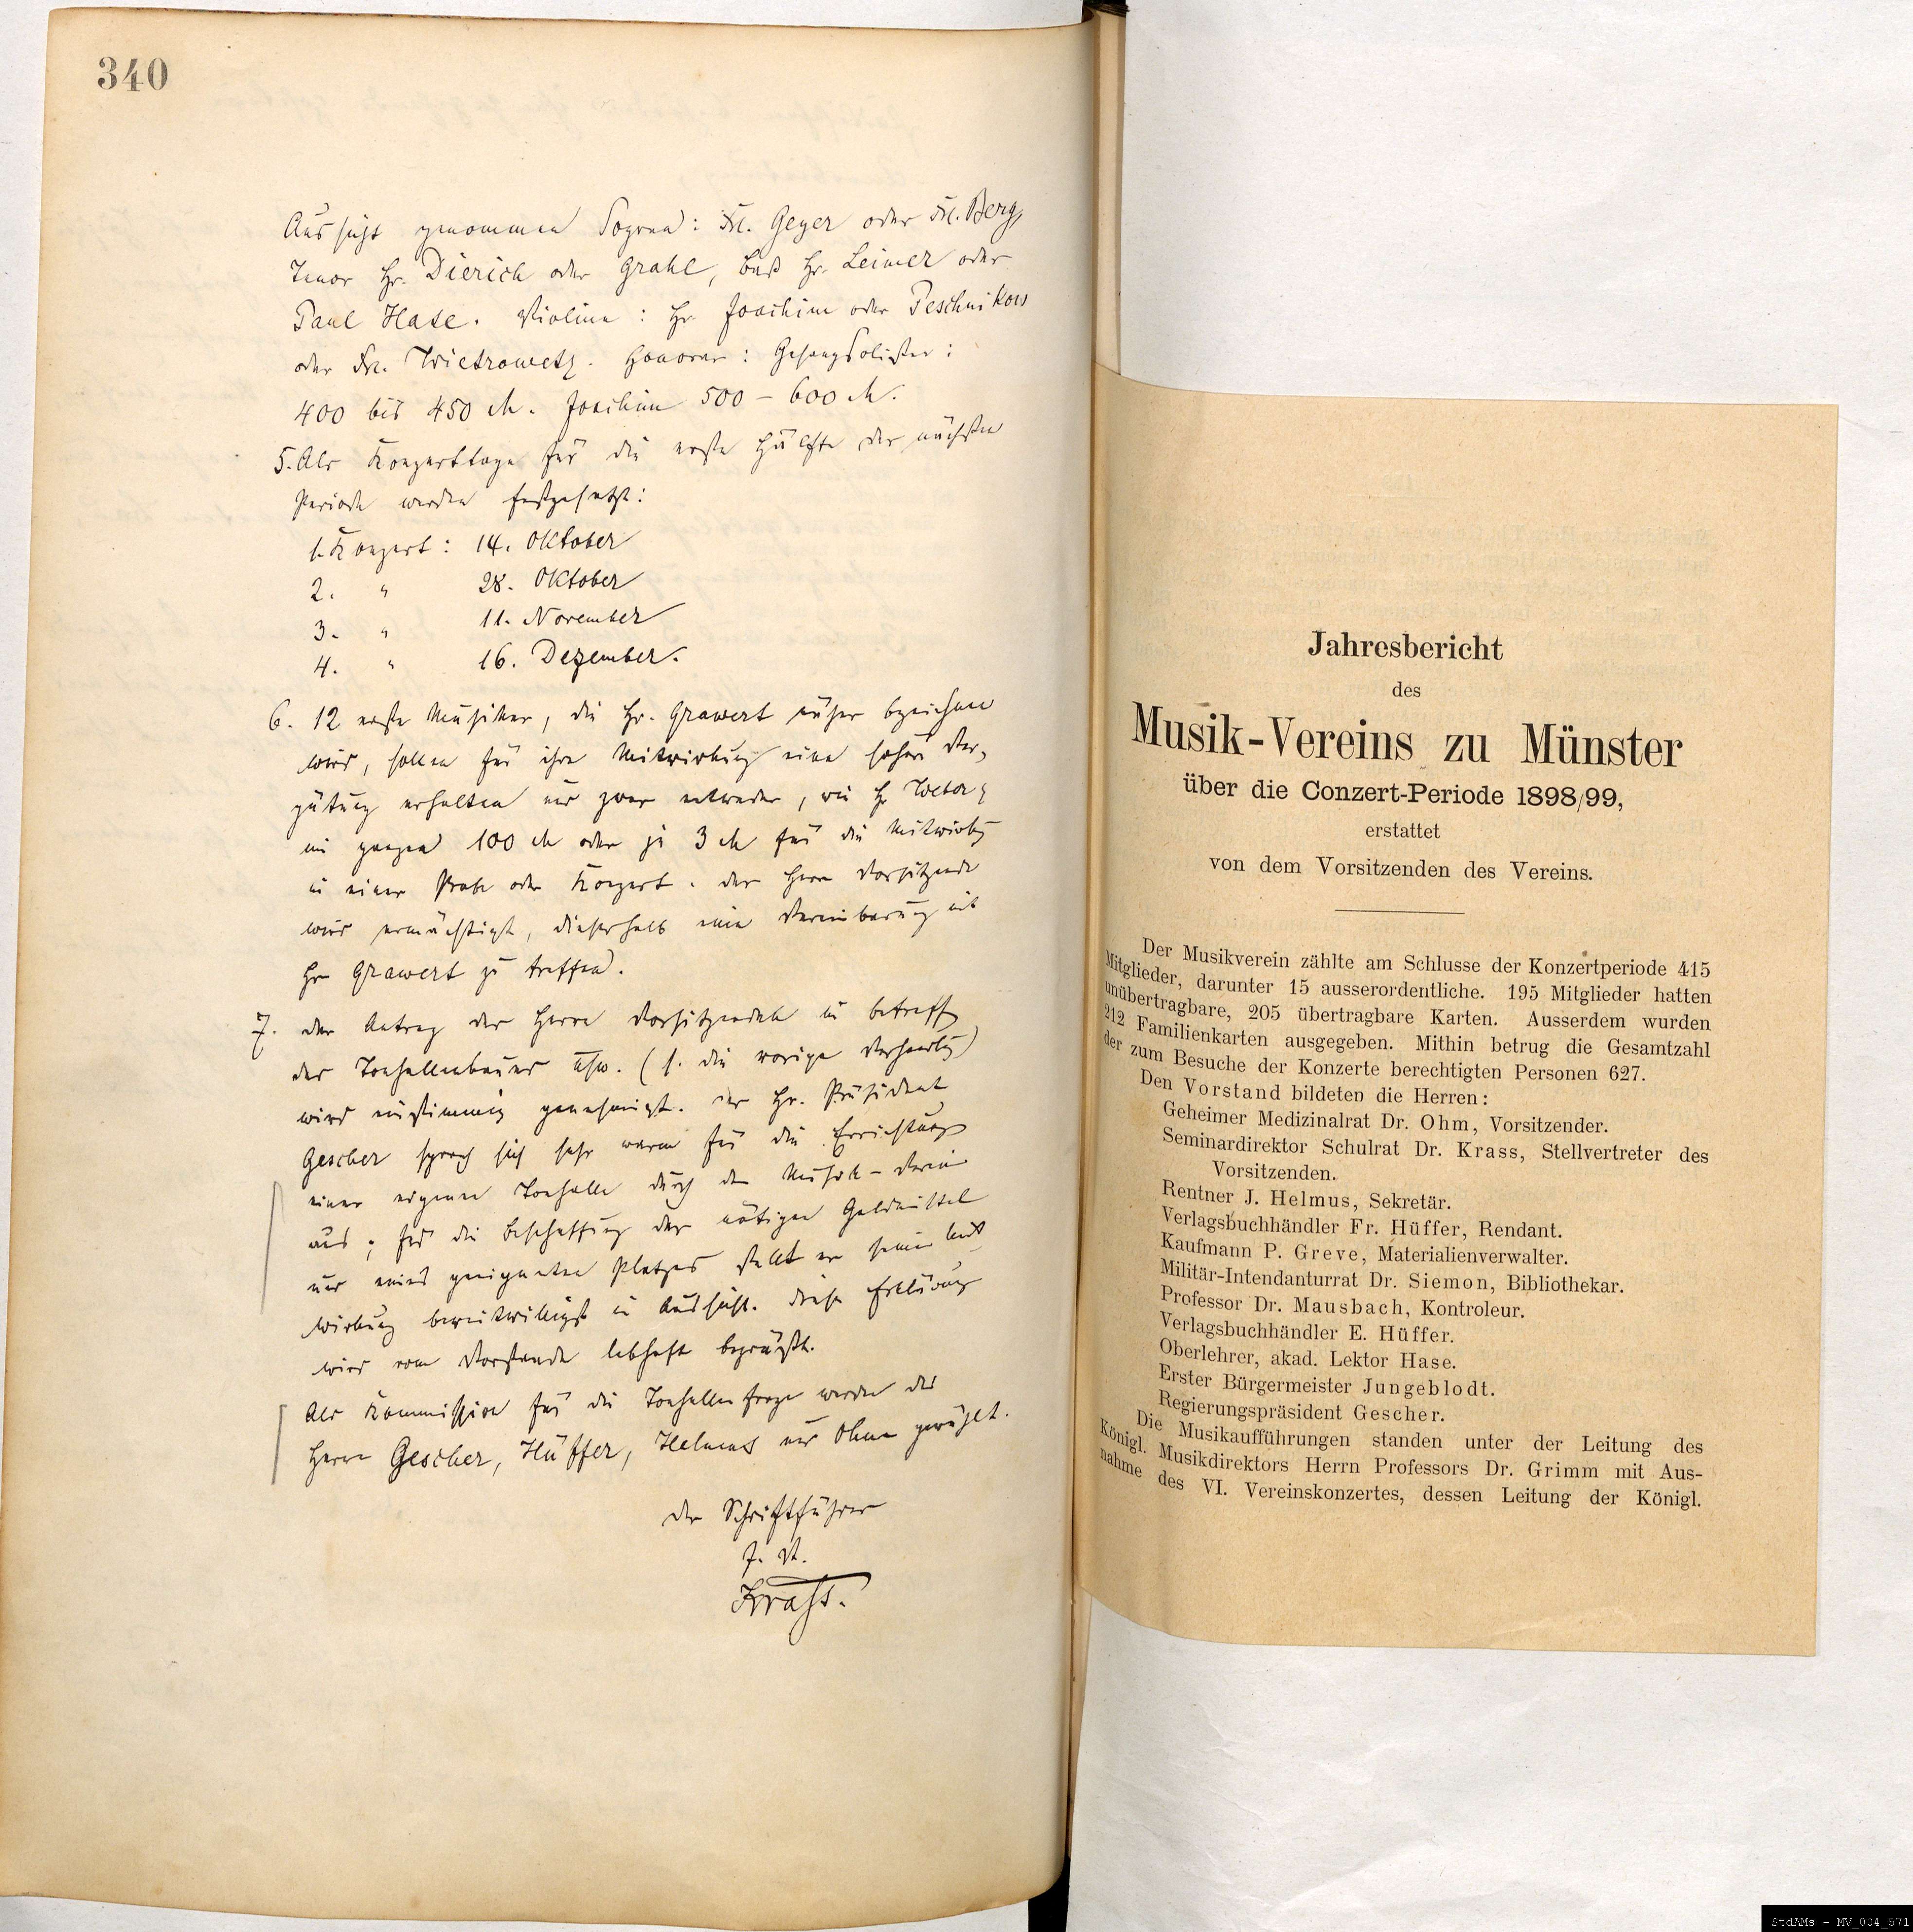 340
Aussicht genommen Sopran: Frl. Geyer oder Frl. Berg,
Tenor Hr. Dierich oder Grahl, Baß Hr. Leimer oder
Paul Hase. Violine: Hr. Joachim oder Petschnikow
oder Frl. Wietrowetz. Honorar: Gesangsolisten:
400 bis 450 M. Joachim 500 – 600 M.
5. Als Konzerttage für die erste Hälfte der nächsten
Periode werden festgesetzt:
1. Konzert: 14. Oktober
2. " 28. Oktober
3. " 11. November
4. " 16. Dezember.
6. 12 erste Musiker, die Hr. Grawert näher bezeichnen
wird, sollen für ihre Mitwirkung eine höhere Ver-
gütung erhalten und zwar entweder, wie Hr
im ganzen 100 M oder je 3 M für die Mitwirkg
in einer Probe oder Konzert. Der Herr Vorsitzende
wird ermächtigt, dieserhalb eine Vereinbarung mit
Hr Grawert zu treffen.
7. Der Antrag des Herrn Vorsitzenden in betreff
des Tonhallenbaues usw. (s. die vorige Verhandlg)
wird einstimmig genehmigt. Der Hr. Präsident
Gescher sprach sich sehr warm für die Errichtung
einer eigenen Tonhalle durch den Musik-Verein
aus; für die Beschaffung der nötigen Geldmittel
und eines geeigneten Platzes stellt er seine Mit-
wirkung bereitwilligst in Aussicht. Diese Erklärung
wird vom Vorstande lebhaft begrüßt.
Als Kommission für die Tonhallenfrage werden die
Herren Gescher, Hüffer, Helmus und Ohm gewählt.
Der Schriftführer
J. V.
Krass.
Jahresbericht
des
Musik-Vereins zu Münster
über die Conzert-Periode 1898/99,
erstattet
von dem Vorsitzenden des Vereins.
Der Musikverein zählte am Schlusse der Konzertperiode 415
Mitglieder, darunter 15 ausserordentliche. 195 Mitglieder hatten
unübertragbare, 205 übertragbare Karten. Ausserdem wurden
212 Familienkarten ausgegeben. Mithin betrug die Gesamtzahl
der zum Besuche der Konzerte berechtigten Personen 627.
Den Vorstand bildeten die Herren:
Geheimer Medizinalrat Dr. Ohm, Vorsitzender.
Seminardirektor Schulrat Dr. Krass, Stellvertreter des
Vorsitzenden.
Rentner J. Helmus, Sekretär.
Verlagsbuchhändler Fr. Hüffer, Rendant.
Kaufmann P. Greve, Materialienverwalter.
Militär-Intendanturrat Dr. Siemon, Bibliothekar.
Professor Dr. Mausbach, Kontroleur.
Verlagsbuchhändler E. Hüffer.
Oberlehrer, akad. Lektor Hase.
Erster Bürgermeister Jungeblodt.
Regierungspräsident Gescher.
Die Musikaufführungen standen unter der Leitung des
Königl. Musikdirektors Herrn Professors Dr. Grimm mit Aus-
nahme des VI. Vereinskonzertes, dessen Leitung der Königl.
StdAMs - MV_004_571